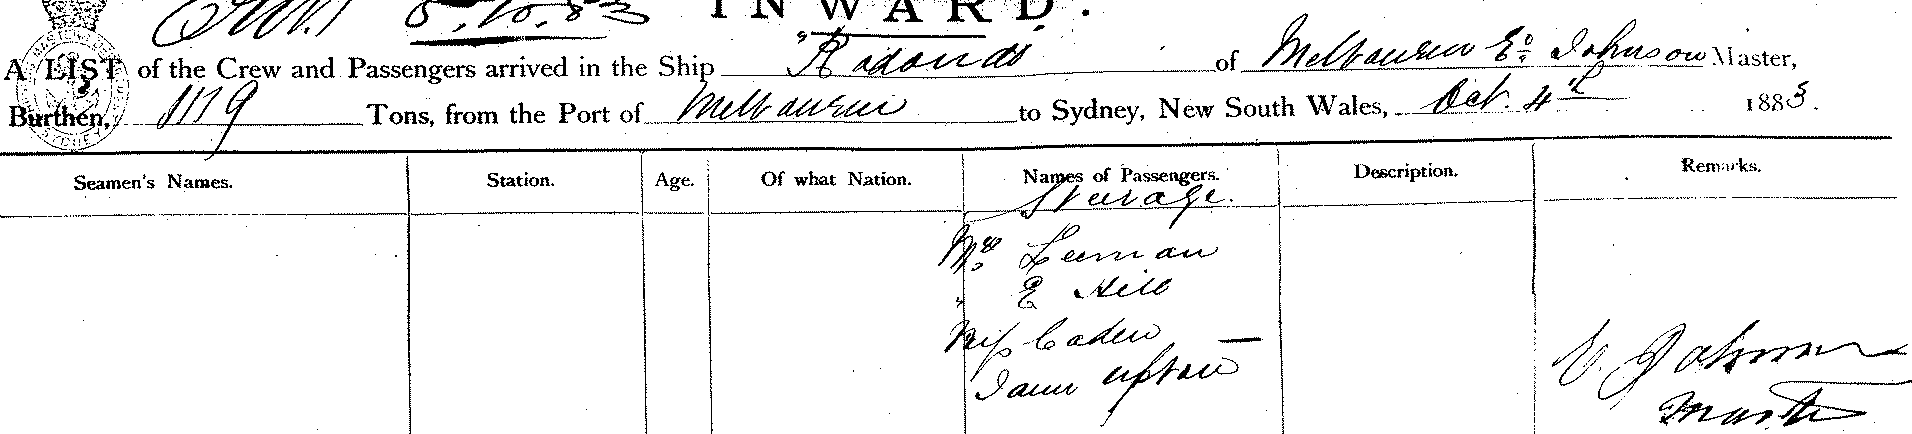 5.10.83 INWARD.
A LIST of the Crew and Passengers arrived in the Ship "Rodondo of Melbourne E. Johnson Master,
Burthen, 1119 Tons, from the Port of Melbourne to Sydney, New South Wales, Oct. 4th 1883.
Seamen's Names. Station. Age. Of what Nation. Names of Passengers. Description. Remarks.
Steerage.
Mrs Leeman
" E Hill
Miss Caden
Jane Upton
E. Johnson
Master